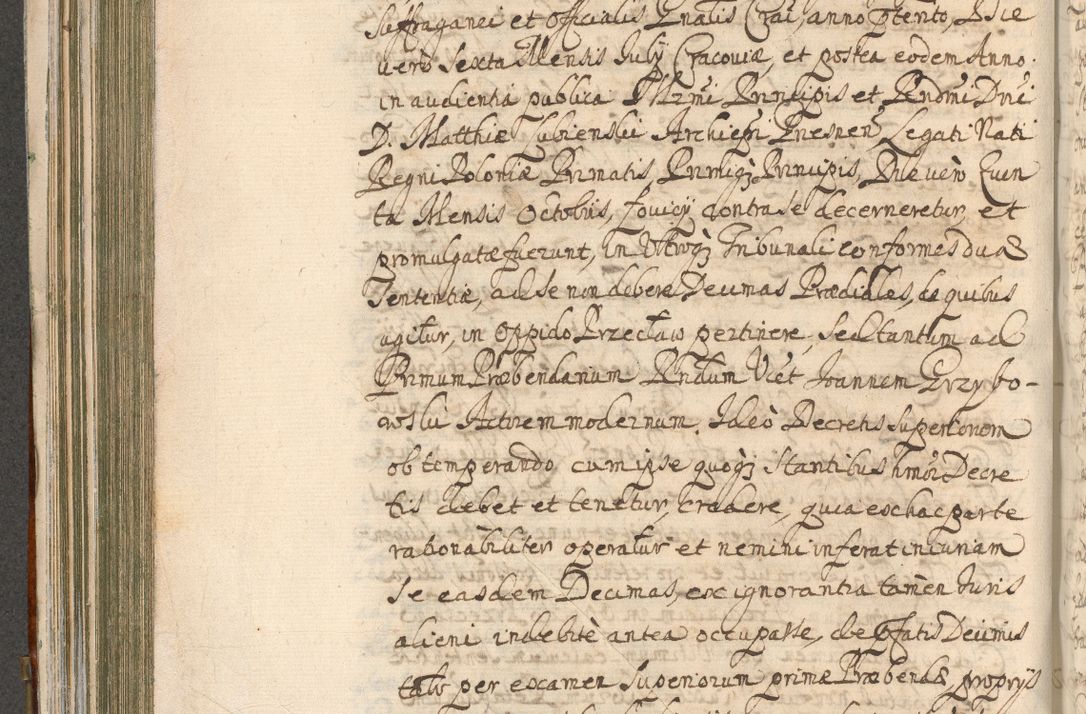 Suffraganei et Officialis Gnalis Crac, anno ptento, Die
vero Sexta Mensis July Cracoviæ, et postea eodem Anno
in audientia publica Illmi Principis et Rndmi Dni
D. Matthiæ Lubienskii Archiepi Gnesnen Legati Nati
Regni Poloniæ Primatis, Primiq3 Principis, Die vero Quin
ta Mensis Octobris, Lovicij contra se decerneretur, et
promulgatæ fuerunt, in Utroq3 Tribunali conformes duæ
Sententiæ, ad se non debere Decimas Prædiales, de quibus
agitur, in Oppido Przecław pertinere, sed tantum ad
Primum Præbendarium Rndum Vict Joannem Grzybo-
wskii Actorem modernum. Ideò Decretis Superiorum
obtemperando cum ipse quoq3 stantibus hmoi Decre
tis debet et tenetur, credere, quia ex hac parte
rationabiliter operatur et nemini inferat iniuriam
se easdem Decimas, ex ignorantia tamen Iuris
alieni indebitè antea occupasse, de pfatis Decimis
tali per examen Superiorum primæ Præbendæ proprijs